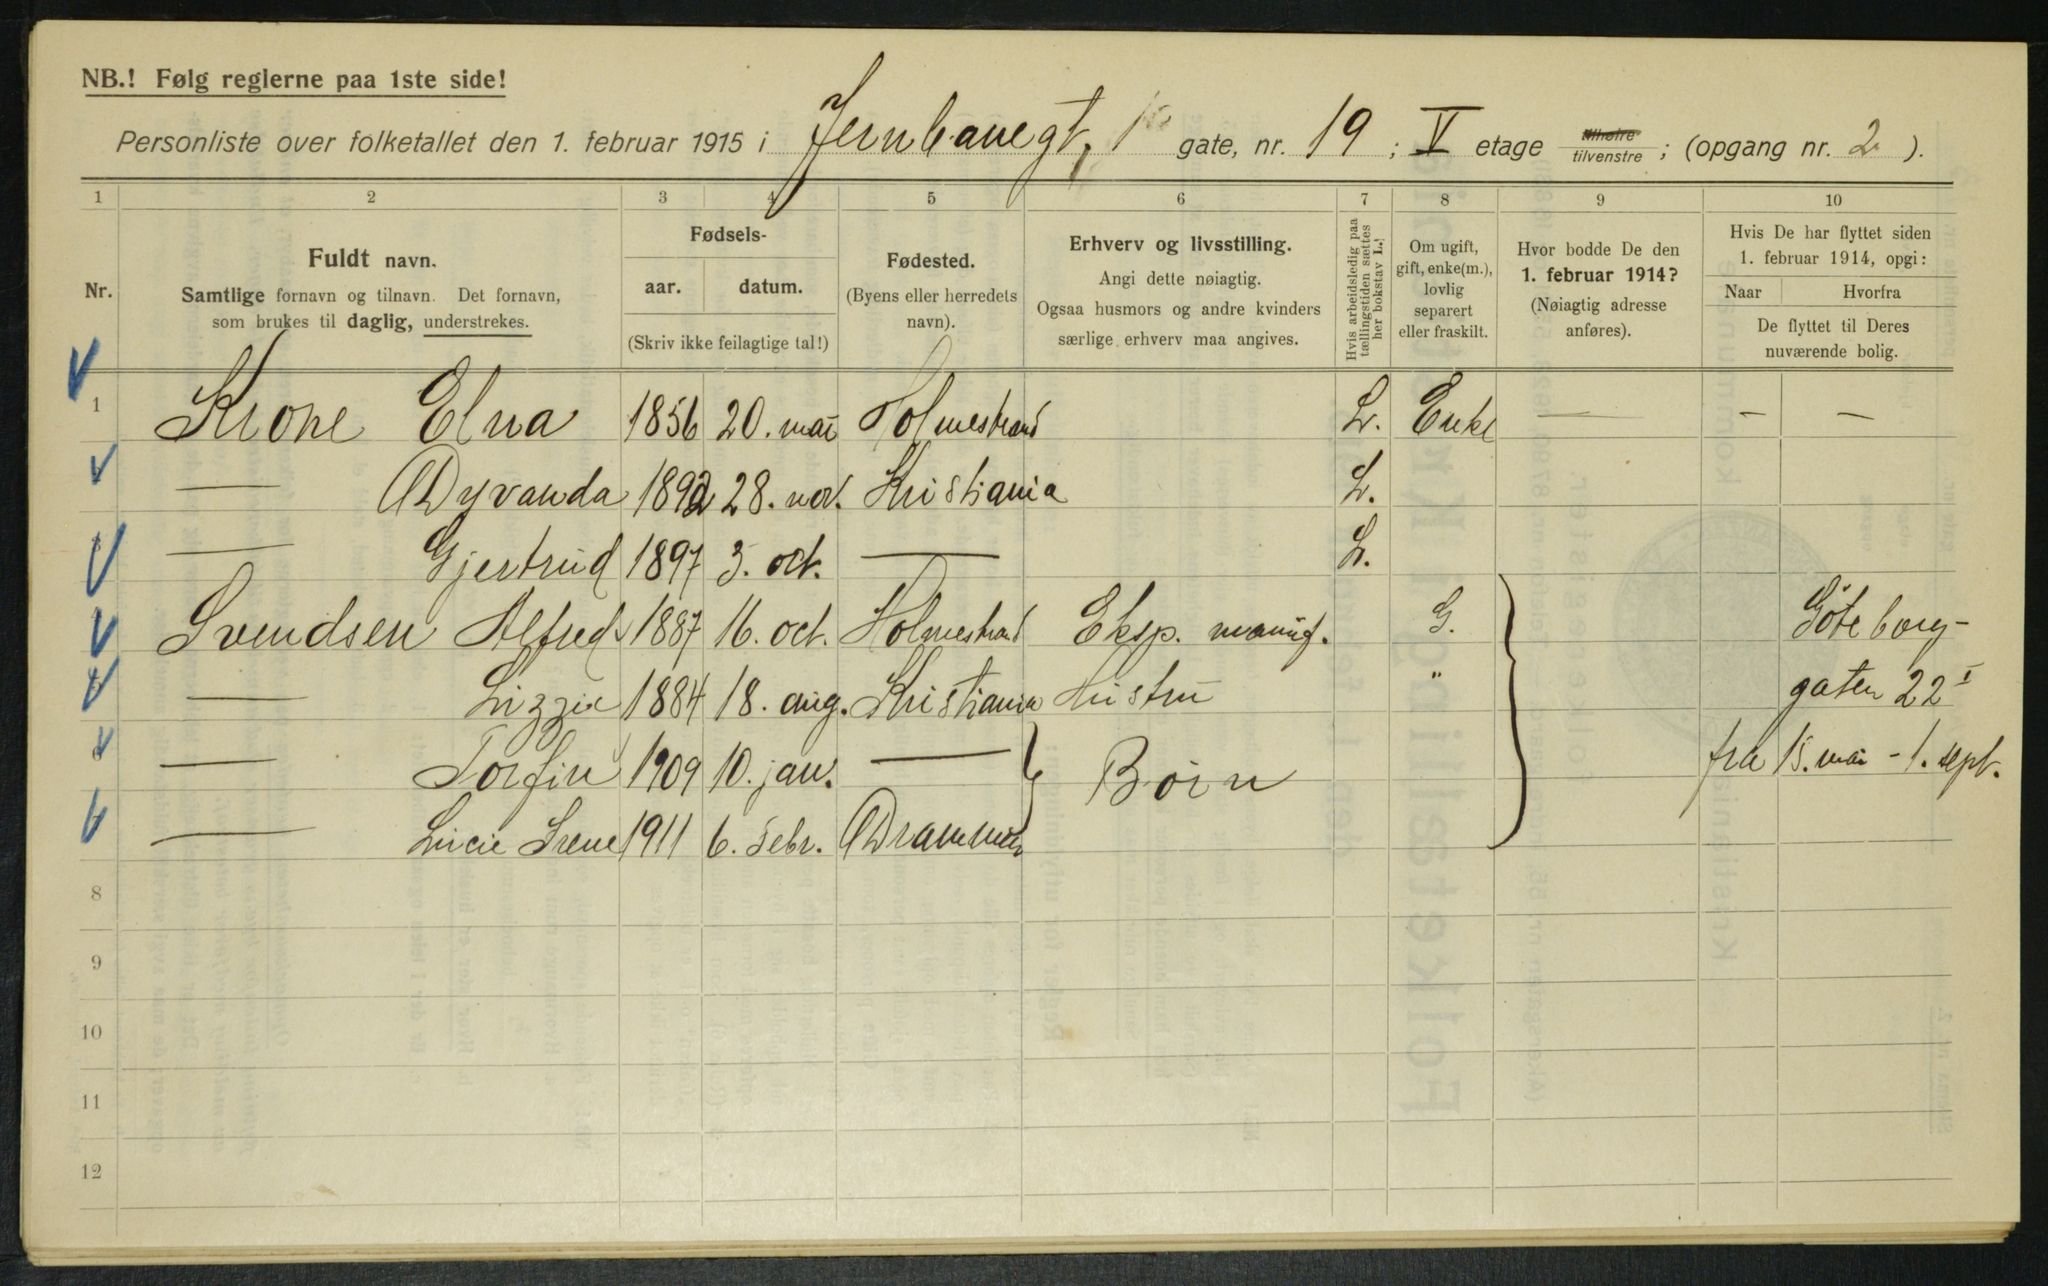 NB.! Følg reglerne paa 1ste side!
Personliste over folketallet den 1. februar 1915 i Jernbanegt, gate, nr. 19 ; V etage tilhøire tilvenstre ; (opgang nr. 2 ).
1 2 3 4 5 6 7 8 9 10
Nr.
Fuldt navn.
Samtlige fornavn og tilnavn. Det fornavn,
som brukes til daglig, understrekes.
Fødsels-
aar. datum.
(Skriv ikke feilagtige tal!)
Fødested.
(Byens eller herredets
navn).
Erhverv og livsstilling.
Angi dette nøiagtig.
Ogsaa husmors og andre kvinders
særlige erhverv maa angives.
Hvis arbeidsledig paa
tællingstiden sættes
her bokstav L.!
Om ugift,
gift, enke(m.),
lovlig
separert
eller fraskilt.
Hvor bodde De den
1. februar 1914?
(Nøiagtig adresse
anføres).
Hvis De har flyttet siden
1. februar 1914, opgi:
Naar Hvorfra
De flyttet til Deres
nuværende bolig.
1 Krone Elna 1856 20. mai Holmestrand L. Enke — — —
— Dyvanda 1892 28. nov. Kristiania L.
— Gjertrud 1897 3. oct. — L.
Svendsen Alfred 1887 16. oct. Holmestrand Eksp. manuf. G. Göteborg-
— Lizzie 1884 18. aug. Kristiania Hustru " gaten 22 I
— Torfin 1909 10. jan. — Børn fra 15. mai - 1. sept.
— Lucie Irene 1911 6. febr. Drammen
8
9
10
11
12